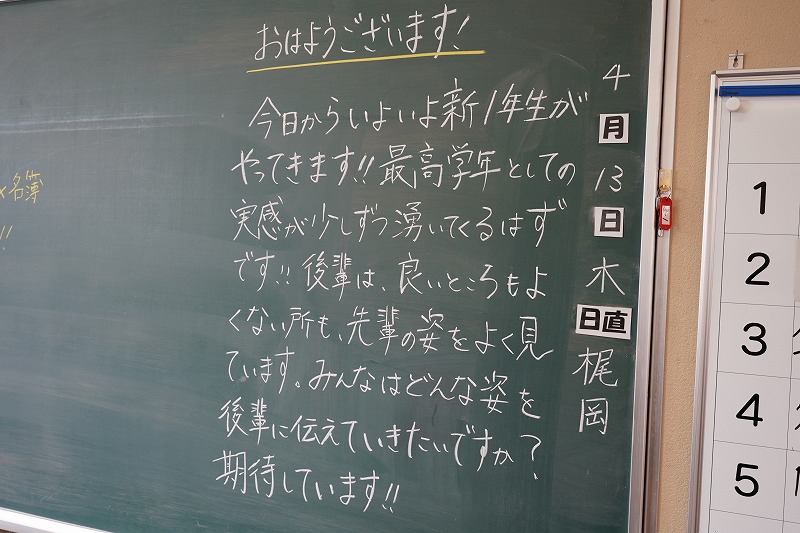 おはようございます!
今日からいよいよ新1年生が
やってきます!!最高学年としての
実感が少しずつ湧いてくるはず
です!!後輩は、良いところもよ
くない所も、先輩の姿をよく見
ています。みんなはどんな姿を
後輩に伝えていきたいですか?
期待しています!!
4月13日木
日直梶岡
名簿
!!
1
2
3
4
5